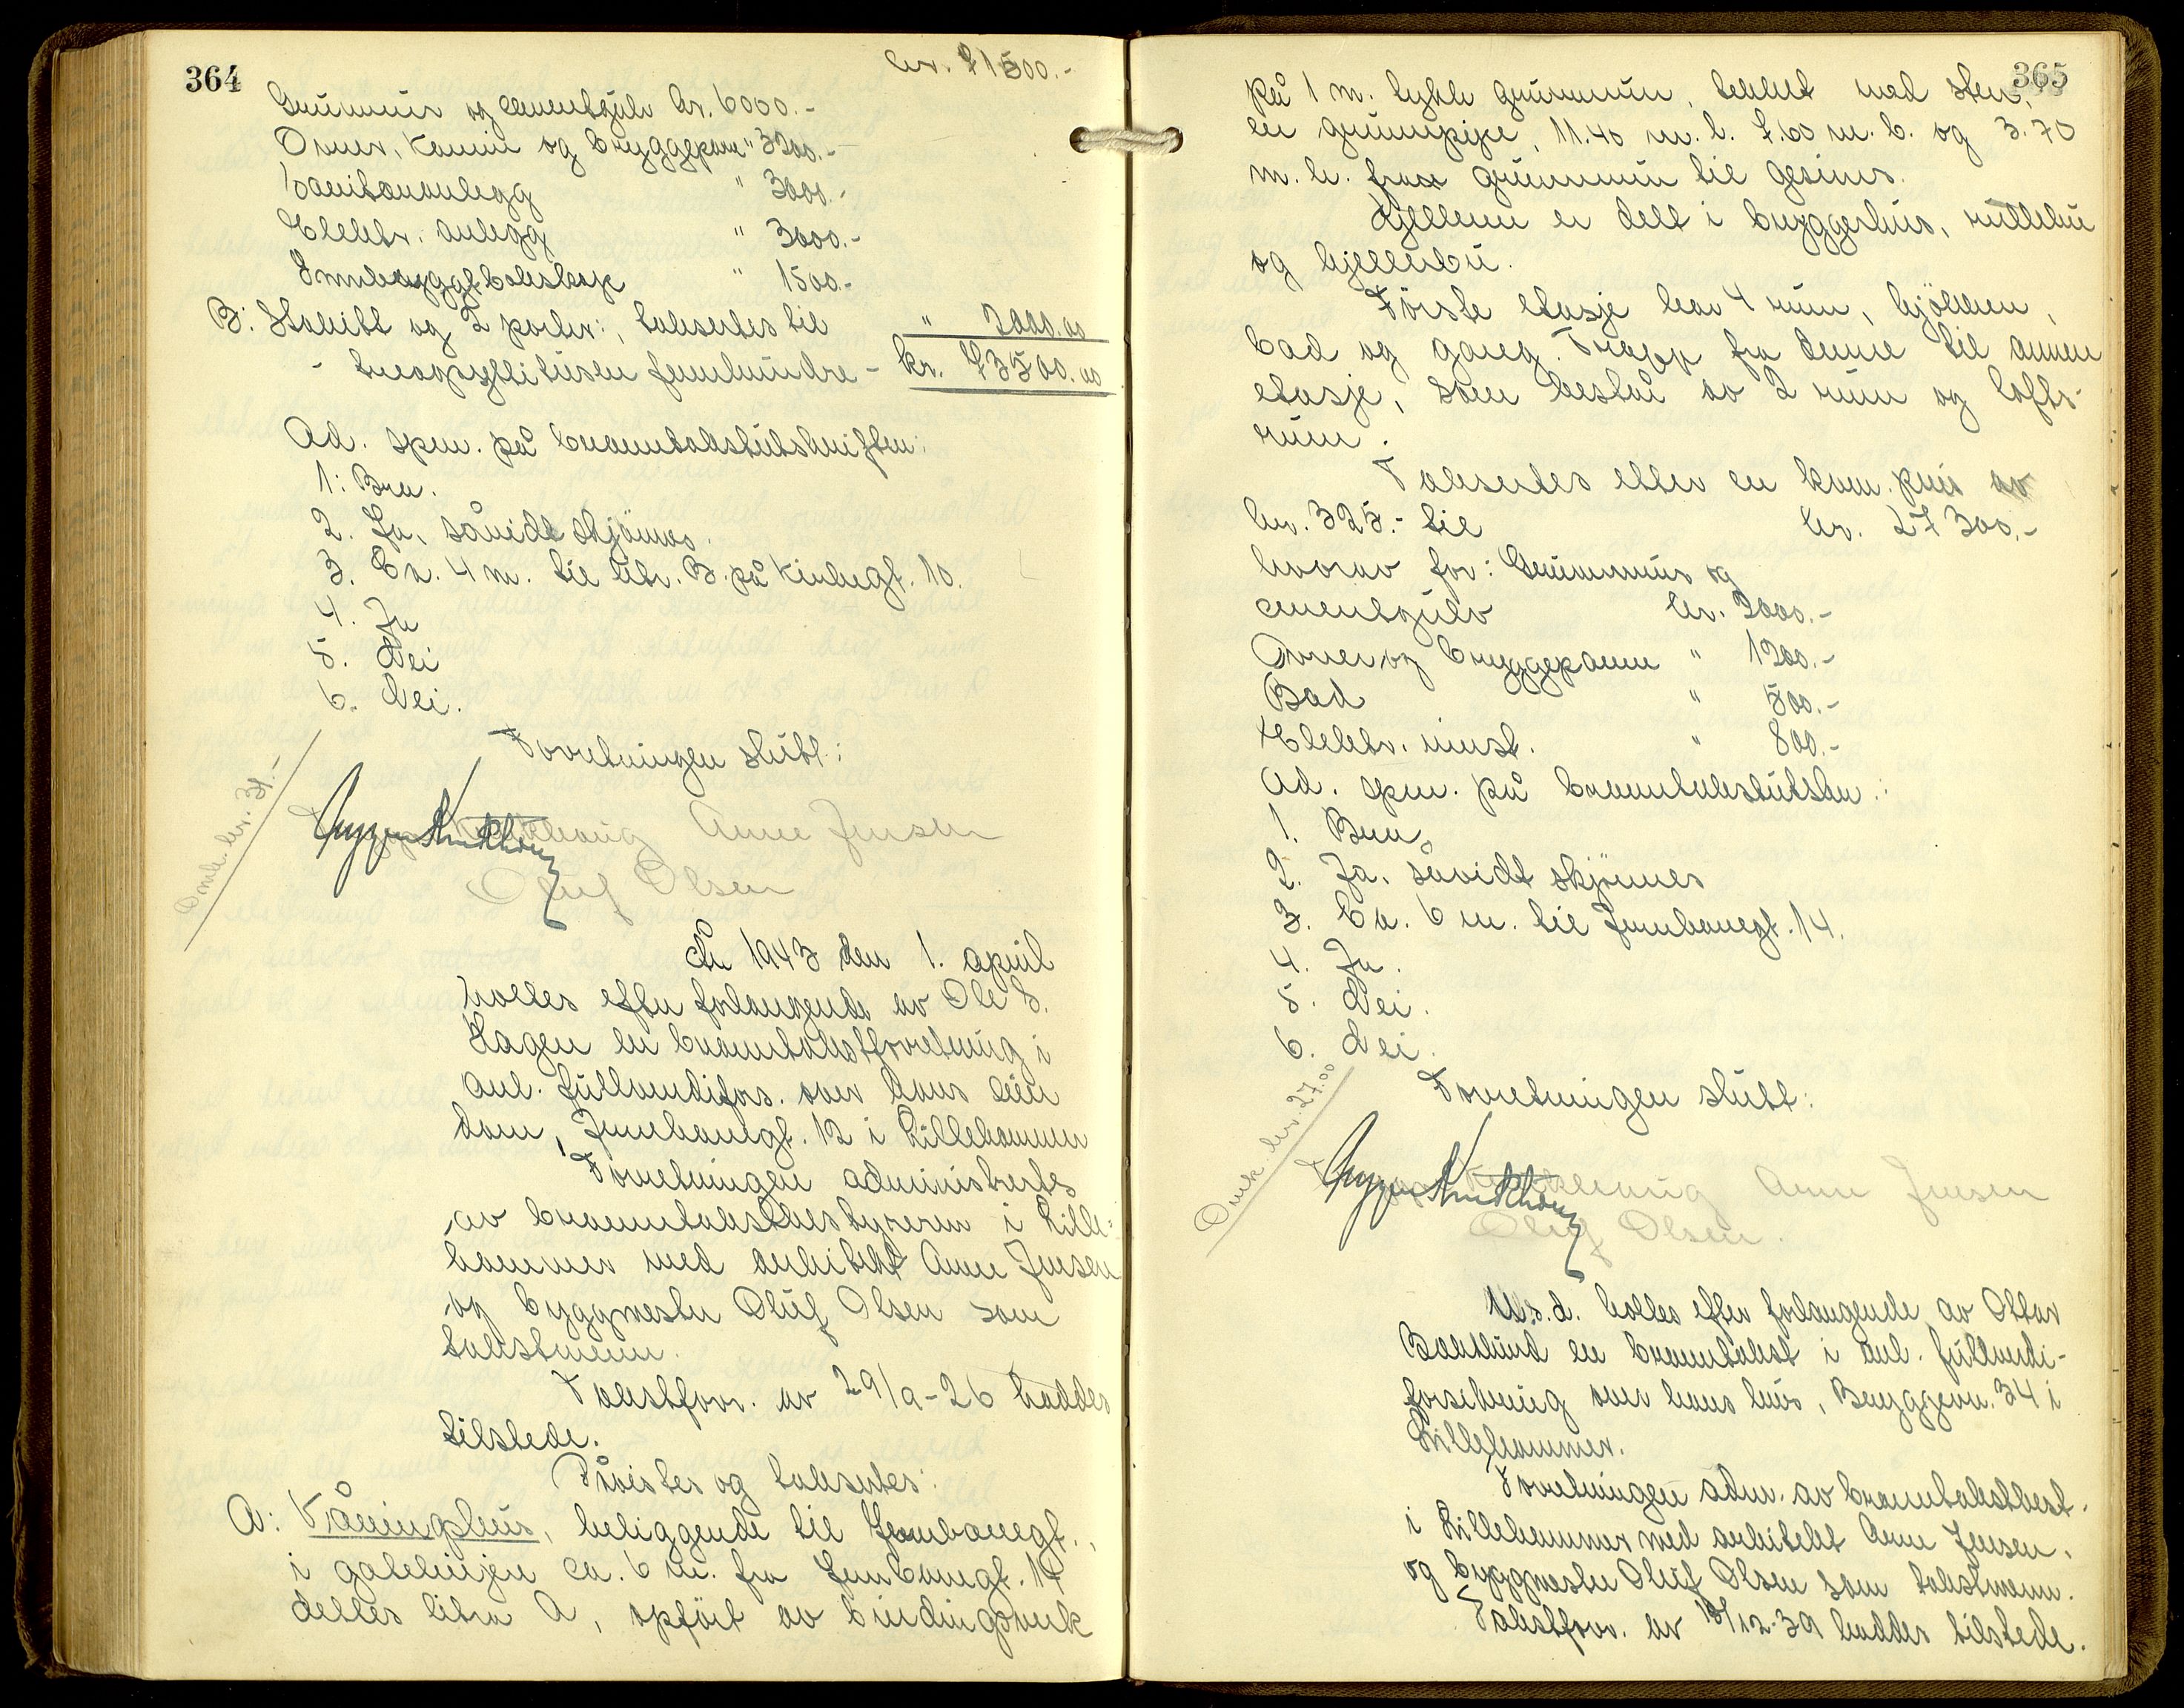 364
kr. 71500.-
Grunnmur og cementgulv kr. 6000.-
Ovner, Kamin og bryggepane " 3200.-
Sanitæranlegg " 3000.-
Elektr. anlegg " 3000.-
Innebygget bokskap " 1500.-
B: Stakitt og 2 porter:, takseres til " 2000.00
- treogsyttitusen femhundre - kr. 73500.00
Ad. spm. på branntakstutskriften:
1: Bra.
2. Ja, såvidt skjönnes.
3. Ca. 4 m. til litr. B. på Kirkegt. 10.
4. Ja
5. Nei
6. Nei.
Forretningen slutt:
Omk. kr. 37.-
Arne Jensen
Oluf Olsen
År 1943 den 1. april
holtes efter forlangende av Ole S.
Hagen en branntakstforretning i
anl. fullverdifors. over hans eien
dom, Jernbanegt. 12 i Lillehammer
Forretningen administrertes
av branntakstbestyreren i Lille-
hammer med arkitekt Arne Jensen
og byggmester Oluf Olsen som
takstmenn.
Takstforr. av 29/9-26 haddes
tilstede.
Påvistes og taksertes:
A: Våningshus, beliggende til Jernbanegt.,
i gatelinjen ca. 6 m. fra Jernbanegt. 14
delles litra A, opfört av bindingsverk
365
på 1 m. tykk grunnmur, tekket med sten,
en grunnpipe, 11.40 m. l. 7.60 m. b. og 3.70
m. h. fra grunnmur til gesims.
Kjelleren er delt i bryggerhus, rullebu
og kjellerbu.
Förste etasje har 4 rum, kjökken,
bad og gang. Trapp fra denne til annen
etasje, som består av 2 rum og lofts-
rum.
Taksertes efter en kvm. pris av
kr. 325.- til kr. 27300.-
hvorav for: Grunnmur og
cementgulv kr. 2000.-
Ovner og bryggepanne " 1200.-
Bad " 500.-
Elektr. inst. " 800.-
Ad. spm. på branntakstutskr.:
1. Bra,
2. Ja, såvidt skjönnes
3. Ca. 6 m. til Jernbanegt. 14.
4. Ja.
5. Nei.
6. Nei.
Forretningen slutt:
Omk. kr. 27.00
Arne Jensen
Oluf Olsen.
U.s.d. holtes efter forlangende av Ottar
Baklund en branntakst i anl. fullverdi-
forsikring over hans hus, Bryggevn. 34 i
Lillehammer.
Forretningen adm. av branntakstbest.
i Lillehammer med arkitekt Arne Jensen,
og byggmester Oluf Olsen som takstmenn.
Takstforr. av 18/12-39 haddes tilstede.